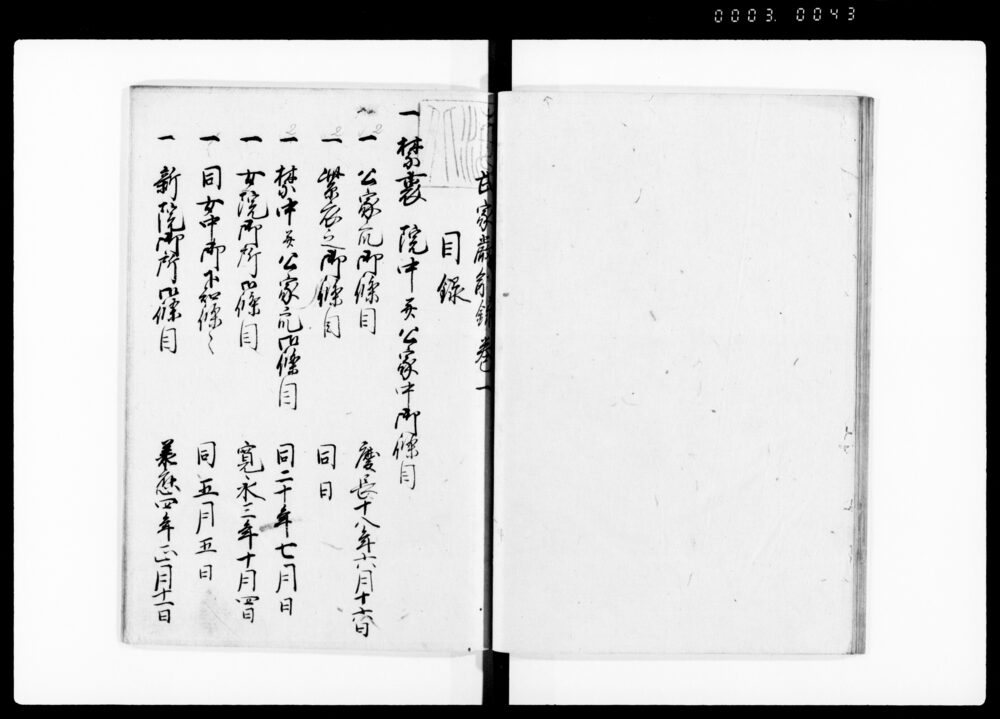 0003. 0043
武家嚴制録 卷一
目録
一 禁裏 院中並公家中御條目
一 公家衆御條目 慶長十八年六月十六日
一 紫衣之御條目 同日
一 禁中並公家衆御條目 同二十年七月日
一 女院御所御條目 寛永三年十月四日
一 同女中御下知條々 同五月五日
一 新院御所御條目 承應四年正月十一日